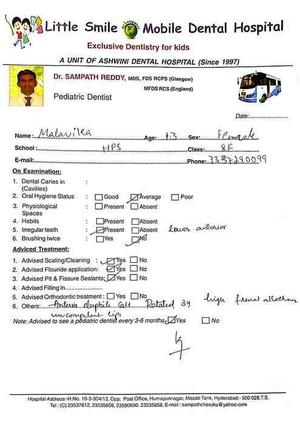 Little Smile Mobile Dental Hospital
Exclusive Dentistry for kids
A UNIT OF ASHWINI DENTAL HOSPITAL (Since 1997)
Dr. SAMPATH REDDY, MDS, FDS RCPS (Glasgow)
MFDS RCS (England)
Pediatric Dentist
Date:
Name: Malavika Age: 13 Sex: Female
School: HPS Class: 8F
E-mail: Phone: 7337290099
On Examination:
1. Dental Caries in :
(Cavities)
2. Oral Hygiene Status : Good Average Poor
3. Physiological : Present Absent
Spaces
4. Habits : Present Absent
5. Irregular teeth : Present Absent lower anterior
6. Brushing twice : Yes No
Adviced Treatment:
1. Advised Scaling/Cleaning : Yes No
2. Advised Flouride application: Yes No
3. Advised Pit & Fissure Sealants: Yes No
4. Advised Filling in
5. Advised Orthodontic treatment : Yes No
6. Others: Rotated high frenal
lips
Note: Advised to see a pediatric dentist every 3-6 months Yes No
Hospital Address: H.No. 10-3-304/13, Opp. Post Office, Humayunnagar, Masab Tank, Hyderabad - 500 028.T.S.
Tel: (O) 23537612, 23535656, 23590690. 23535858, E-mail: sampathcheruku@yahoo.com